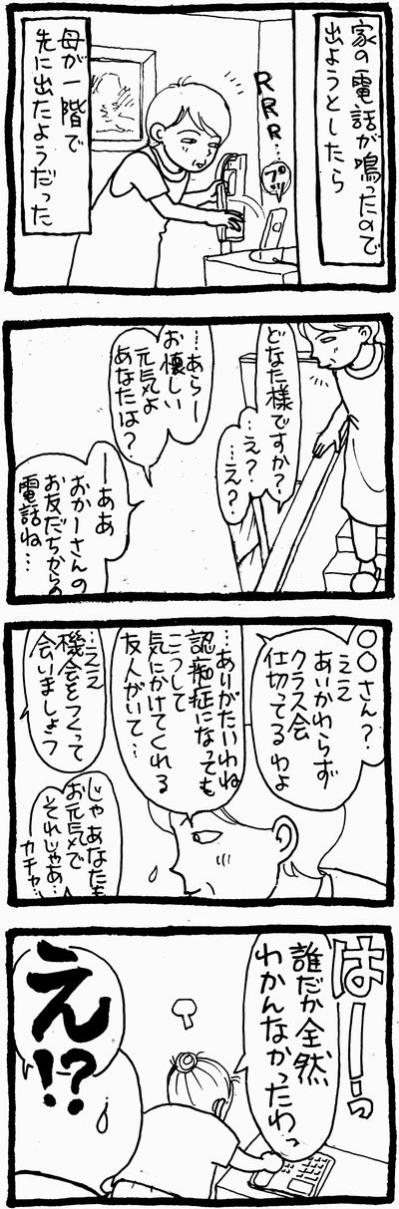 家の電話が鳴ったので
出ようとしたら
RRR…
プッ
母が一階で
先に出たようだった
どなた様ですか?
…え?
…え?
…あらー
お懐しい
元気よ
あなたは?
ーああ
おかーさんの
お友だちからの
電話ね…
〇〇さん?
ええ
あいかわらず
クラス会
仕切ってるわよ
…ありがたいわね
認痴症になっても
こうして
気にかけてくれる
友人がいて…
…ええ
機会をつくって
会いましょう
じゃあなたも
お元気で
それじゃあ…
カチャ…
はーーっ
誰だか全然
わかんなかったわっ
え!?